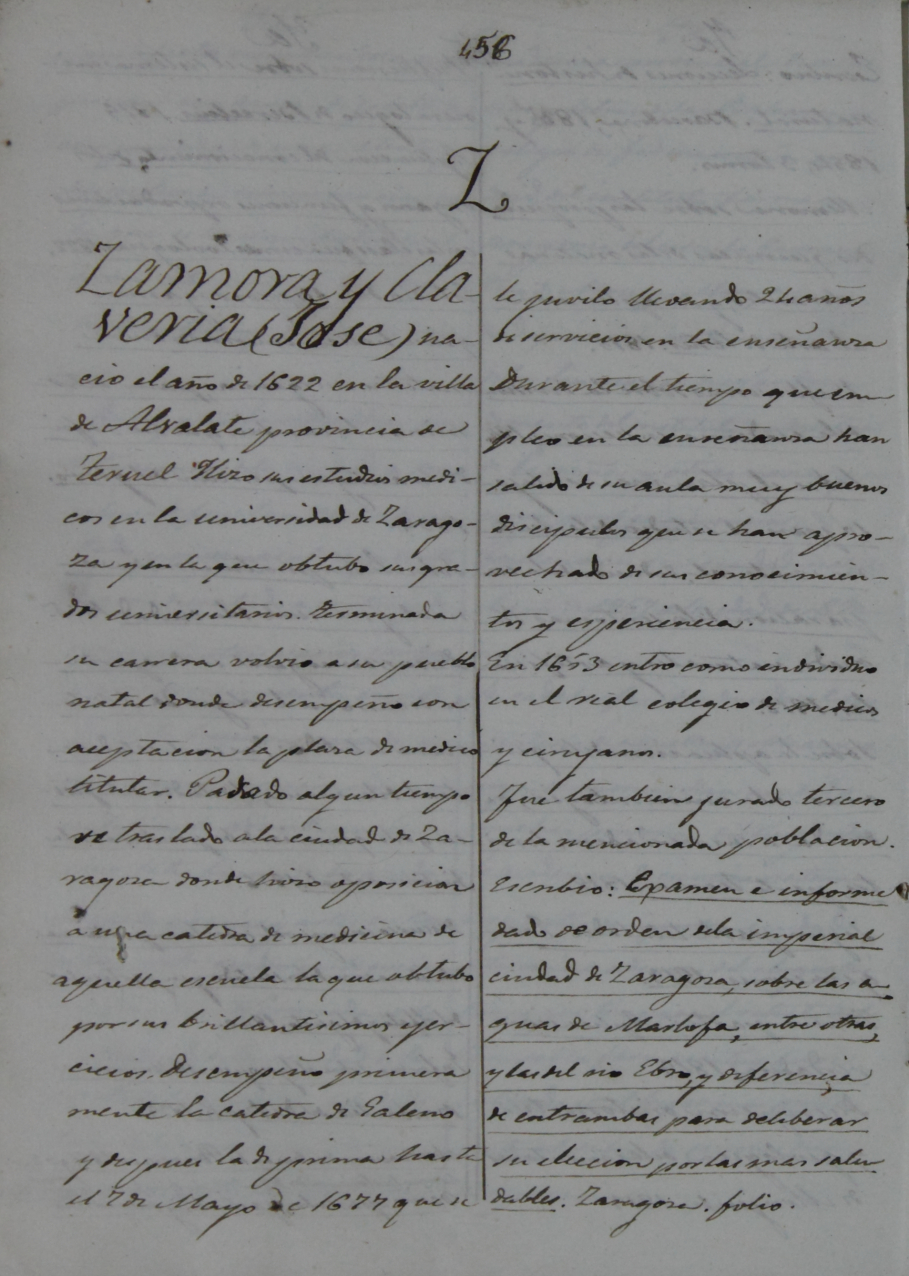 456
Z
Zamora y Cla-
veria (Jose) na-
cio el año de 1622 en la villa
de Alvalate provincia de
Teruel Hizo sus estudios medi-
cos en la universidad de Zarago-
za y en la que obtubo sus gra-
dos universitarios. terminada
su carrera volvio a su pueblo
natal donde desempeño con
aceptacion la plaza de medico
titular. Pasado algun tiempo
se traslado a la ciudad de Za-
ragoza donde hizo oposicion
a una catedra de medicina de
aquella escuela la que obtubo
por sus brillantisimos ejer-
cicios. desempeño primera
mente la catedra de Galeno
y despues la de prima hasta
el 7 de Mayo de 1677 que se
le juvilo llevando 24 años
de servicios en la enseñanza
Durante el tiempo que em
pleo en la enseñanza han
salido de su aula muy buenos
discipulos que se han apro-
vechado de sus conocimien-
tos y esperiencia.
En 1653 entro como individuo
en el real colegio de medicos
y cirujanos.
Fue tambien jurado tercero
de la mencionada poblacion.
Escribio: Examen e informe
dado de orden de la imperial
ciudad de Zaragoza, sobre las a-
guas de Marlofa, entre otras,
y las del rio Ebro, y diferencia
de entrambas para deliberar
su eleccion por las mas salu
dables. Zaragoza. folio.